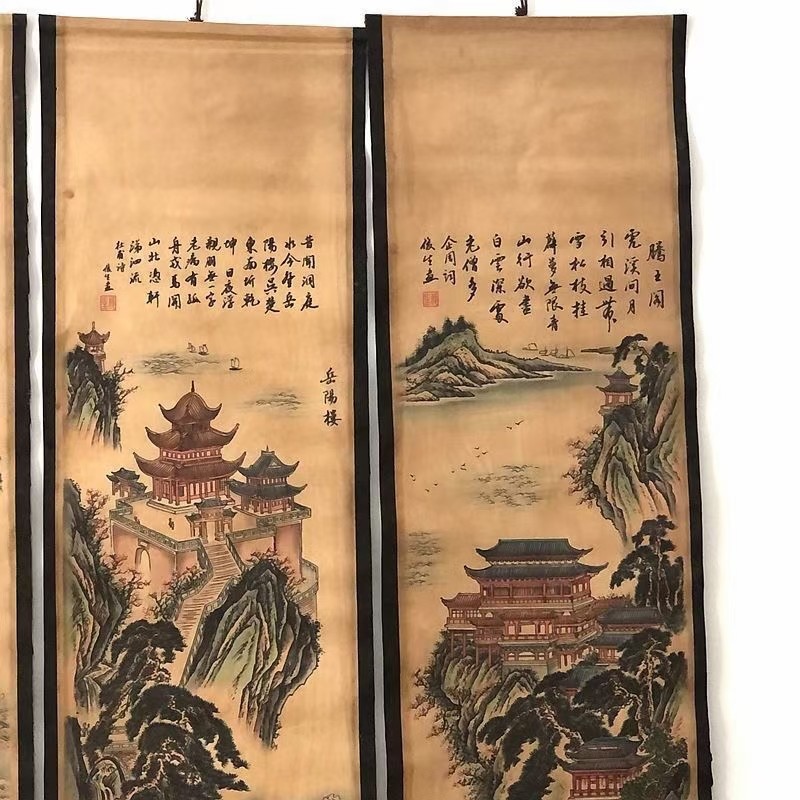 昔聞洞庭
水今登岳
陽樓吳楚
東南坼乾
坤日夜浮
親朋無一字
老病有孤
舟戎馬關
山北憑軒
涕泗流
杜甫詩
俊生畫
岳陽樓
滕王閣
虎溪间月
引相過帶
雪松枝挂
薜蘿無限青
山行欲盡
白雲深處
老僧多
企周词
俊生畫